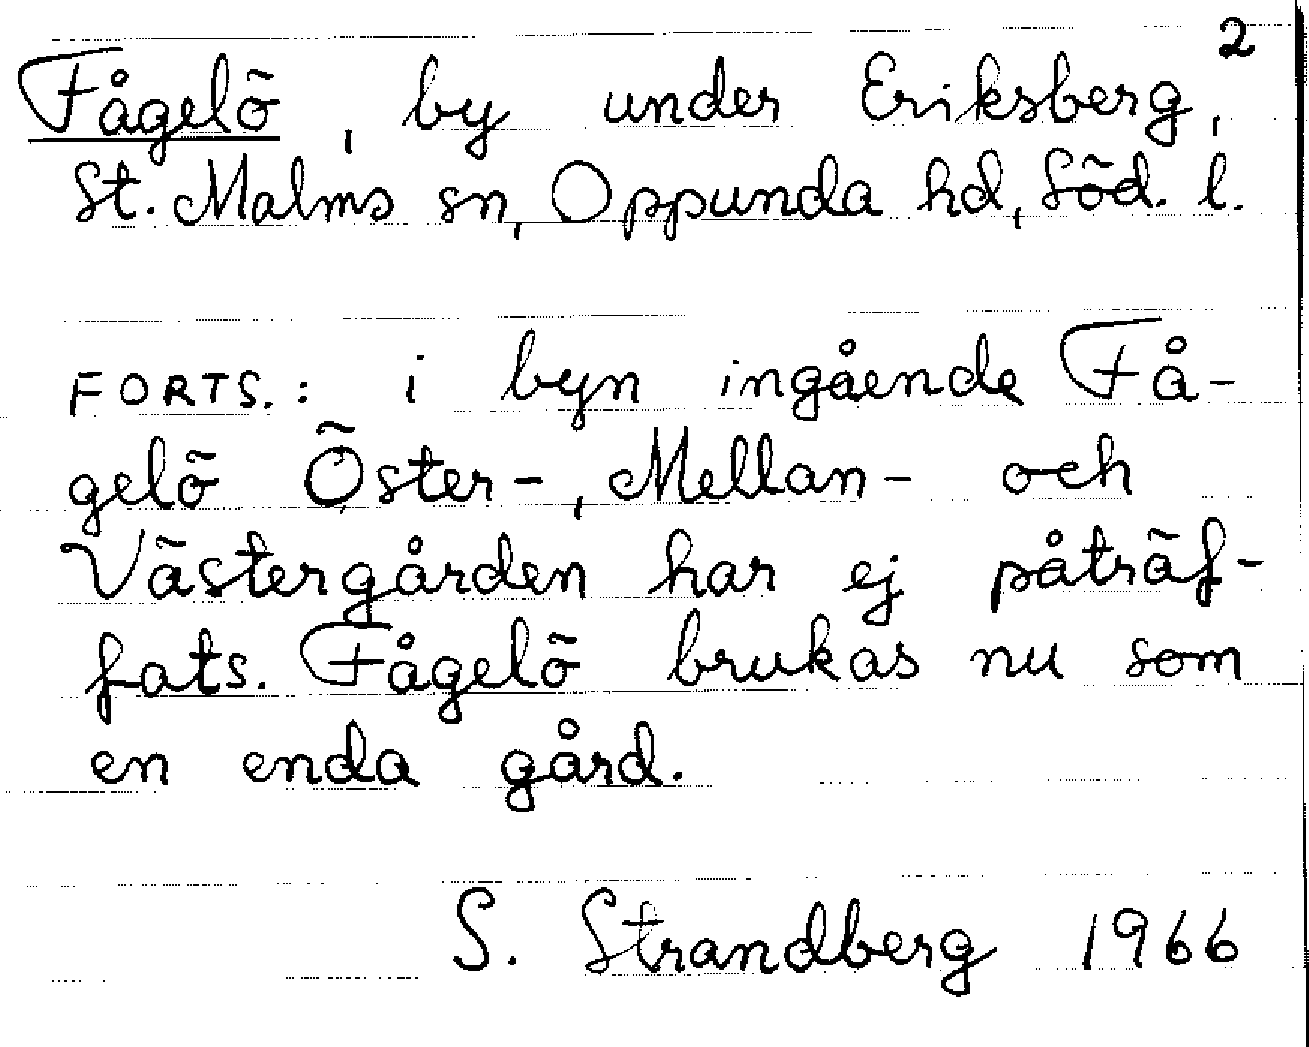 2
Fågelö, by under Eriksberg,
St. Malms sn, Oppunda hd, Söd. l.
FORTS.: i byn ingående Få-
gelö Öster-, Mellan- och
Västergården har ej påträf-
fats. Fågelö brukas nu som
en enda gård.
S. Strandberg 1966